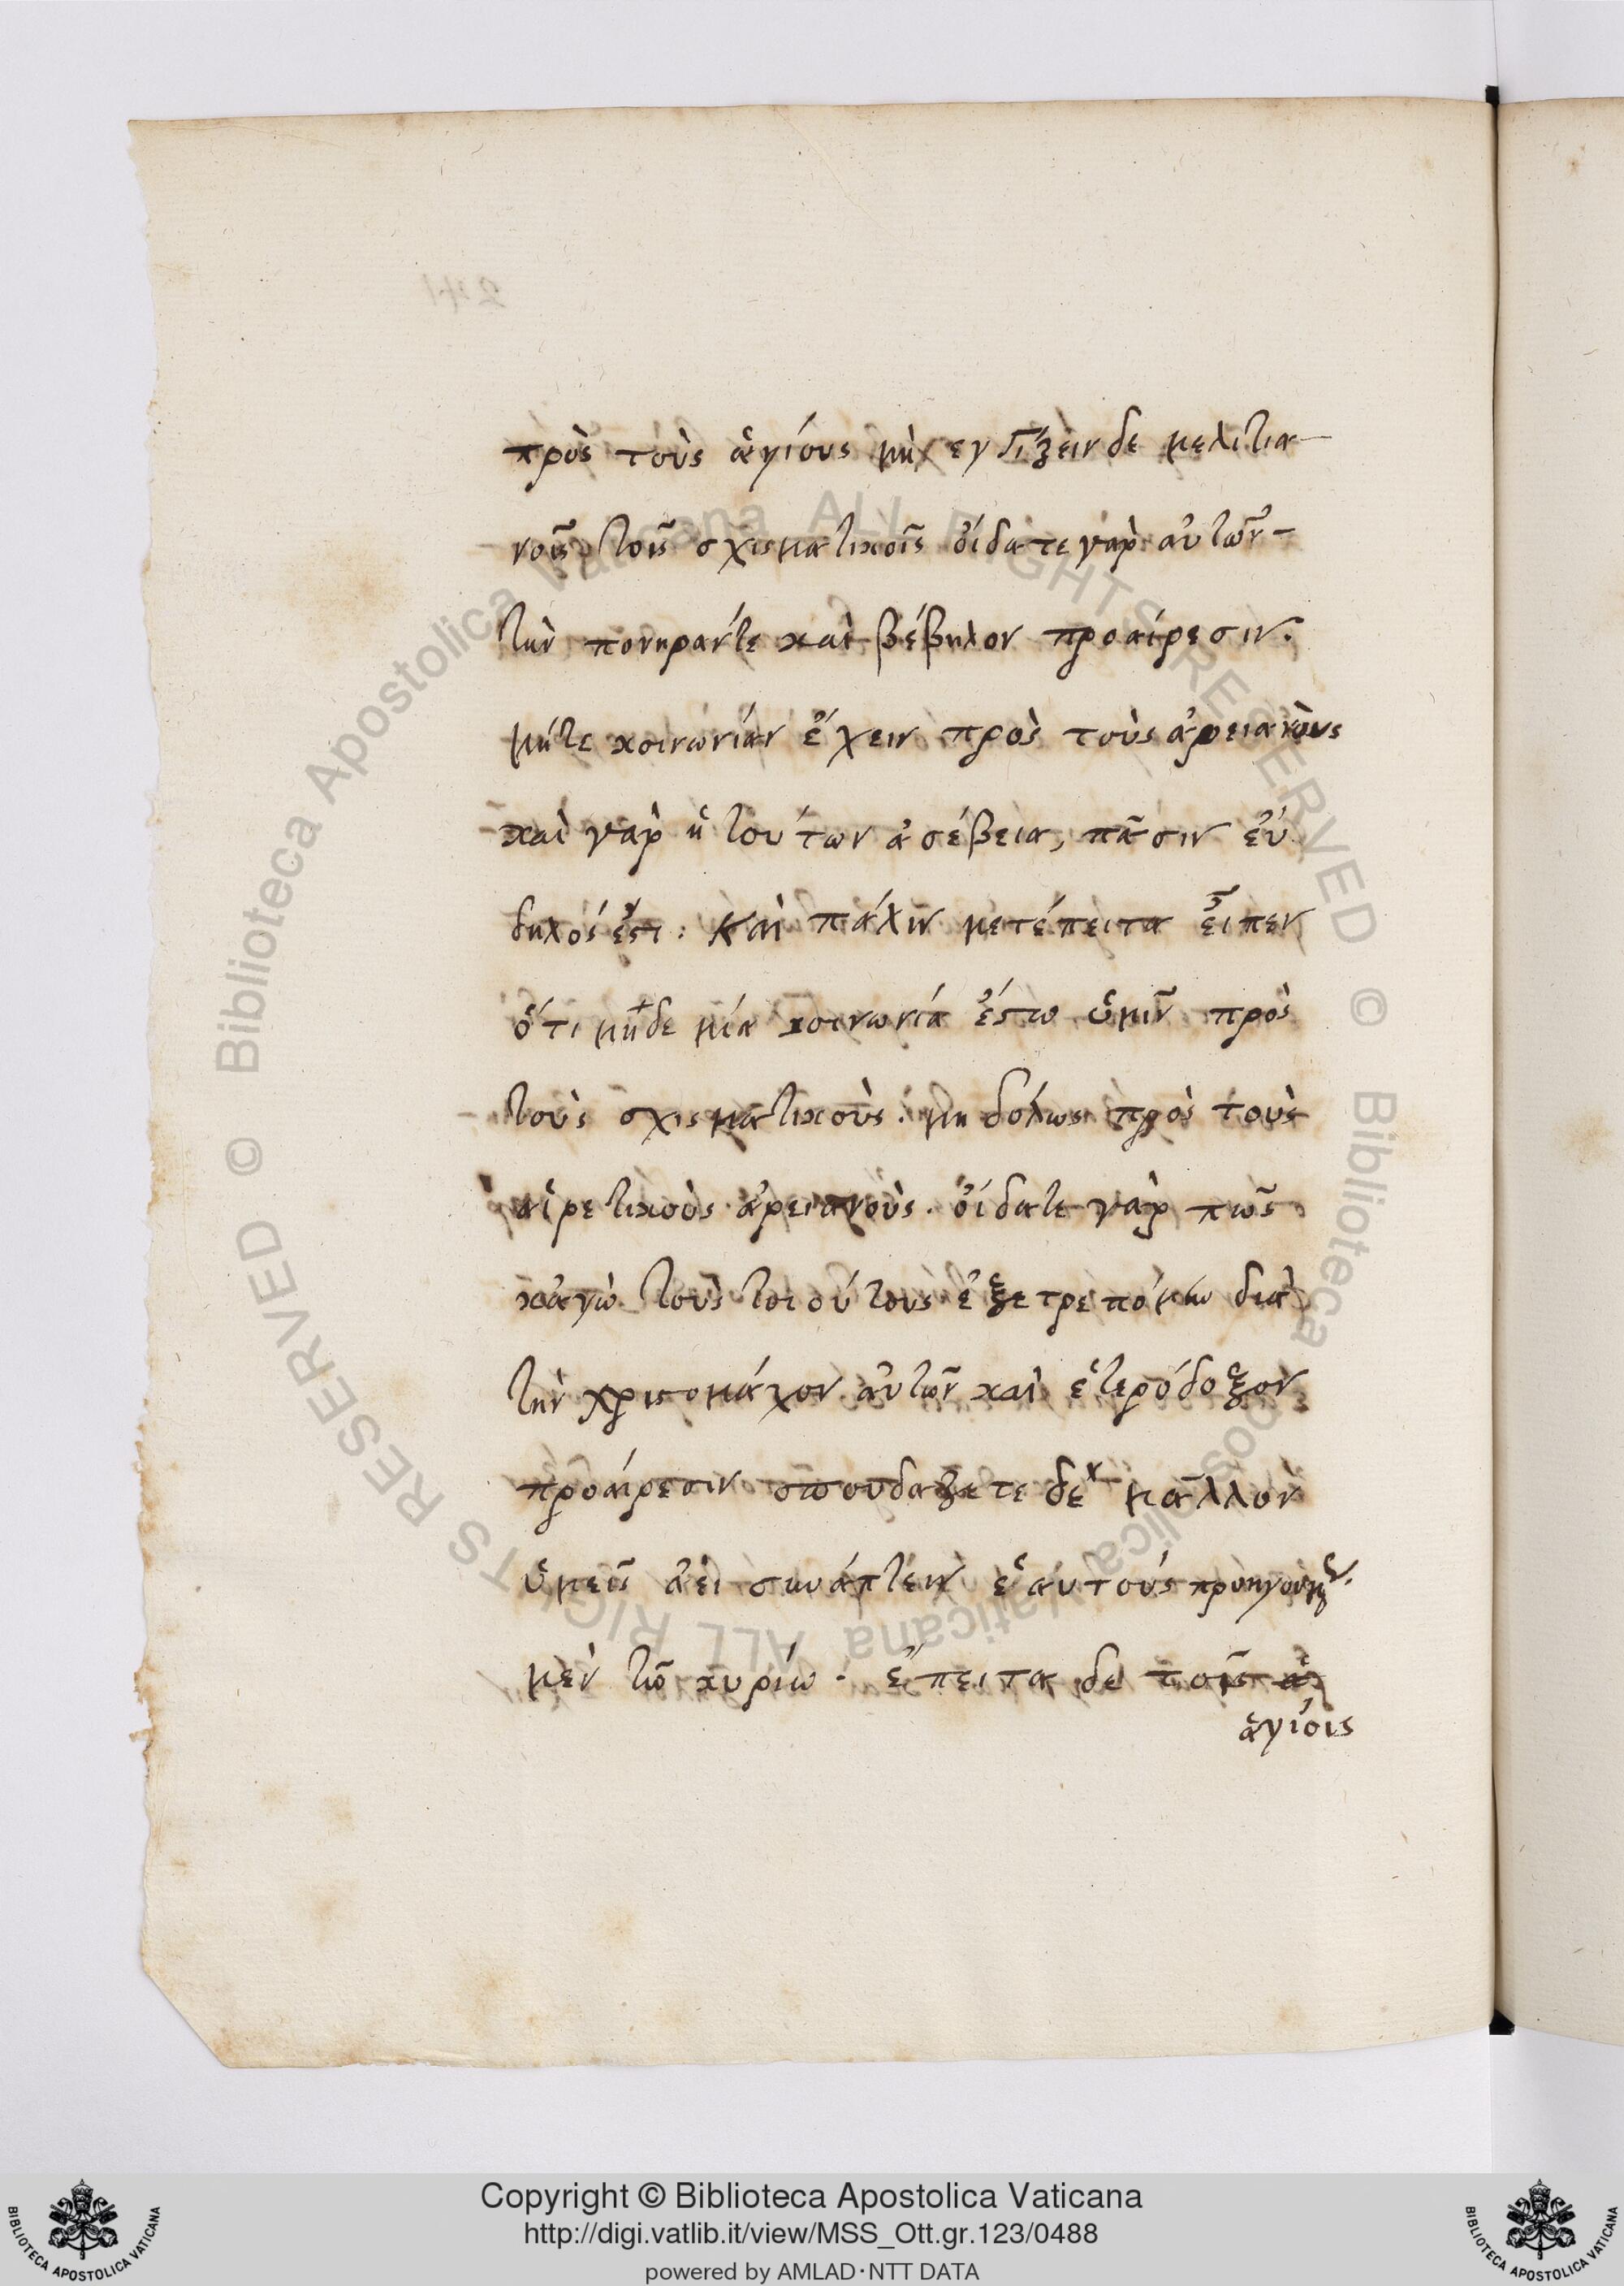 πρὸς τοὺς ἁγίους μὴ ἐγγίζειν δε μελιτια-
νοῖς τοῖς σχισματικοῖς οἴδατε γαρ αὐτῶν
τὴν πονηράντε και βέβηλον προαίρεσιν.
μήτε κοινωνίαν ἔχειν πρὸς τοὺς ἀρειανοὺς
καὶ γαρ ἡ τούτων ἀσέβεια, πᾶσιν εὐ
δηλός ἐστι: Καὶ πάλιν μετέπειτα εἶπεν
ὅτι μηδε μία κοινωνία ἔστω ὑμῖν πρὸς
τοὺς σχισματικοὺς. μηδόλως πρὸς τοὺς
αἱρετικοὺς ἀρειανοὺς. οἴδατε γαρ πῶς
κἀγὼ τοὺς τοιούτους ἐξετρεπόμην διὰ
τὴν χριστομάχον αὐτῶν καὶ ἑτερόδοξον
προαίρεσιν σπουδαζετε δὲ μᾶλλον
ὑμεῖς ἀεὶ συνάπτειν ἑαυτοὺς προηγουμέν.
μὲν τῶ κυρίω. ἔπειτα δε τοῖς
ἁγίοις
Copyright © Biblioteca Apostolica Vaticana
http://digi.vatlib.it/view/MSS_Ott.gr.123/0488
powered by AMLAD·NTT DATA
BIBLIOTECA APOSTOLICA VATICANA
BIBLIOTECA APOSTOLICA VATICANA
© Biblioteca Apostolica Vaticana ALL RIGHTS RESERVED
© Biblioteca Apostolica Vaticana ALL RIGHTS RESERVED